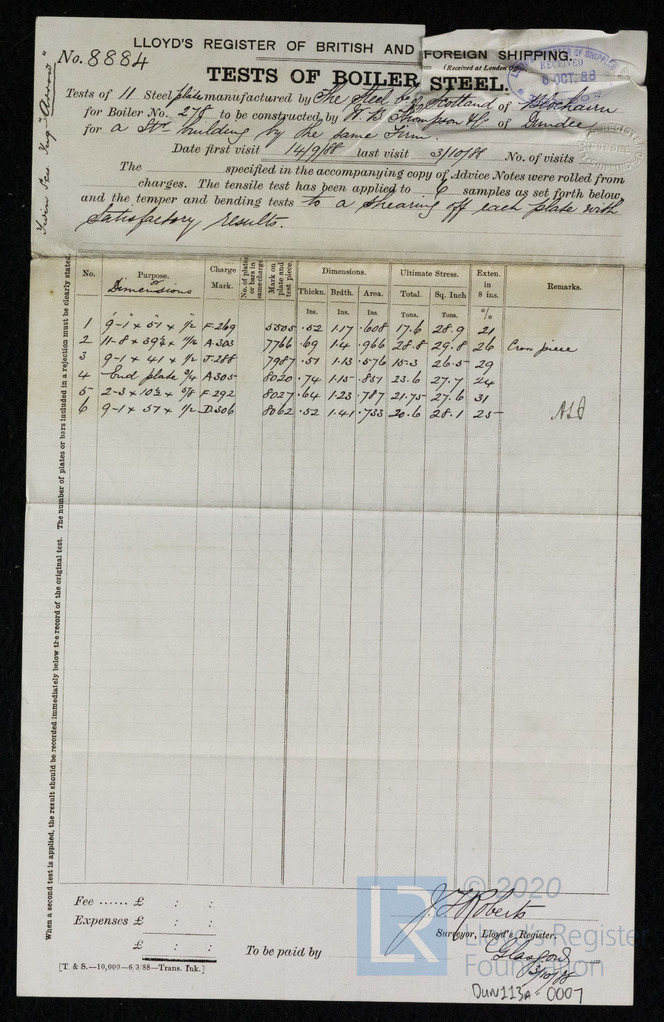 No. 8884
LLOYD'S REGISTER OF BRITISH AND FOREIGN SHIPPING.
(Received at London Office
RECEIVED
6 OCT. 88
TESTS OF BOILER STEEL.
Tests of 11 Steel plates manufactured by The Steel Co of Scotland of Blochairn
for Boiler No. 278 to be constructed by W B Thompson & Co of Dundee
for a Str building by the same Firm.
Date first visit 14/9/88 last visit 3/10/88 No. of visits
The specified in the accompanying copy of Advice Notes were rolled from
charges. The tensile test has been applied to 6 samples as set forth below
and the temper and bending tests to a shearing off each plate with
Satisfactory results.
Twin Sc Tug "Arrow"
When a second test is applied, the result should be recorded immediately below the record of the original test. The number of plates or bars included in a rejection must be clearly stated.
No. Purpose. or Dimensions Charge Mark. No. of plates or bars in same charge Mark on plate and test piece. Dimensions. Ultimate Stress. Exten. in 8 ins. Remarks.
Thickn. Brdth. Area. Total. Sq. Inch
Ins. Ins. Ins. Tons. Tons. %
1 9-1 × 57 × 1/2 F.269 5505 .52 1.17 .608 17.6 28.9 21
2 11-8 × 39 1/2 × 11/16 A.303 7766 .69 1.4 .966 28.8 29.8 26 Cross piece
3 9-1 × 41 × 1/2 J.288 7987 .51 1.13 .576 15.3 26.5 29
4 End plate 3/4 A.305 8020 .74 1.15 .851 23.6 27.7 24
5 2-3 × 10 1/2 × 5/8 F.292 8027 .64 1.23 .787 21.75 27.6 31
6 9-1 × 57 × 1/2 D.306 8062 .52 1.41 .733 20.6 28.1 25
Fee ...... £ : :
Expenses £ : :
£ : :
To be paid by
J F Roberts
Surveyor, Lloyd's Register.
Glasgow
3/10/88
[T. & S.—10,000—6/3/88—Trans. Ink.]
LR
© 2020
Lloyd's Register
Foundation
DUN113A-0007